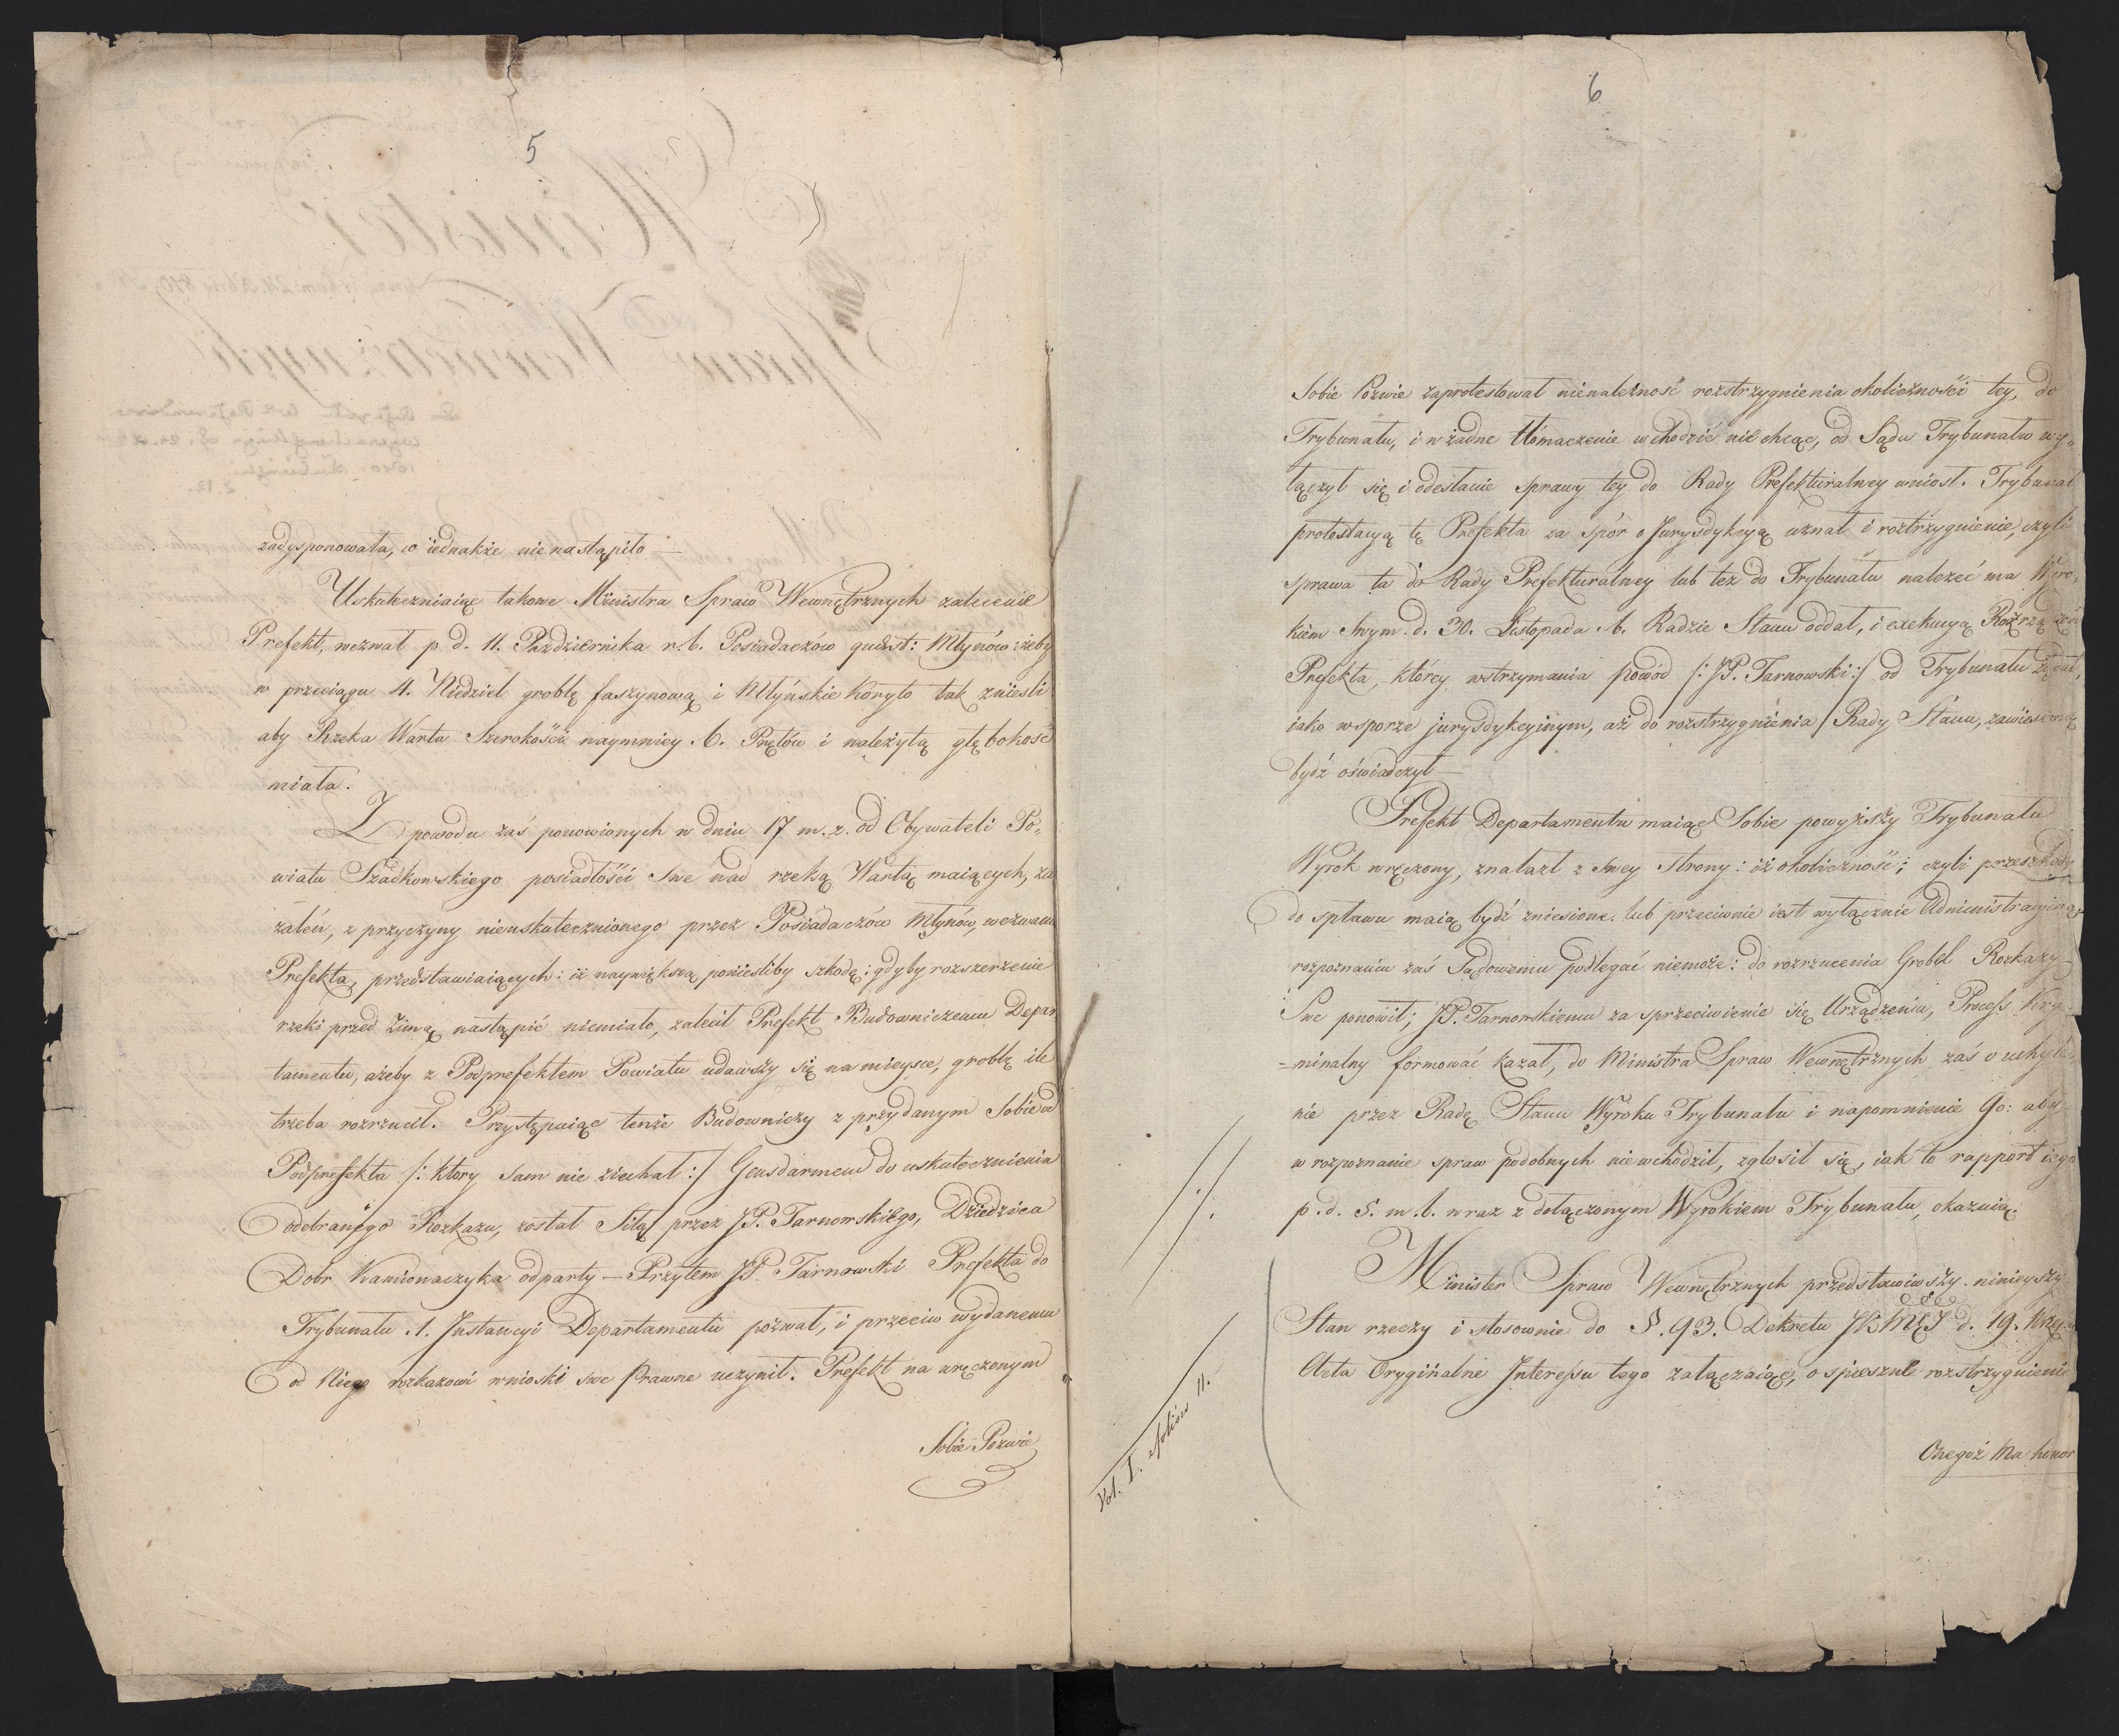 5
zadysponowała, co iednakże nie nastąpiło —
Uskuteczniaiąc takowe Ministra Spraw Wewnętrznych zalecenie
Prefekt, wezwał p. d. 11. Października r. b. Posiadaczów quaest: Młynów: żeby
w przeciągu 4. Niedziel groblę faszynową i Młyńskie Koryto tak znieśli
aby Rzeka Warta Szerokości naymniey 6. Prętów i należytą głębokość
miała.
Z powodu zaś ponowionych w dniu 17 m. z. od Obywateli Po„
wiatu Szadkowskiego posiadłości swe nad rzeką Wartą maiących, za
żaleń, z przyczyny nieuskutecznionego przez Posiadaczów Młynów, wezwania
Prefekta, przedstawiaiących: iż naywiększą ponieśliby szkodę; gdyby rozszerzenie
rzeki przed Zimą nastąpić niemiało, zalecił Prefekt Budowniczemu Depar
tamentu, ażeby z Podprefektem Powiatu udawszy się na mieysce, groblę ile
trzeba rozrzucił. Przystępuiąc tenże Budowniczy z przydanym Sobie od
Podprefekta /: który sam nie ziechał :/ Gensdarmem do uskutecznienia
odebranego Rozkazu, został Siłą przez JP. Tarnowskiego, Dziedzica
Dobr Kamionaczyka odparty — Przytem JP. Tarnowski Prefekta do
Trybunału 1. Instancyi Departamentu pozwał, i przeciw wydanemu
od Niego rozkazowi wnioski swe Prawne uczynił. Prefekt na wręczonym
Sobie Pozwie
6
Sobie Pozwie zaprotestował nienależność rozstrzygnienia okoliczności tey, do
Trybunału, i w żadne tłómaczenie wchodzić nie chcąc, od Sądu Trybunału wy„
łączył się i odesłanie sprawy tey do Rady Prefekturalney wniosł. Trybunał
protestacyą tę Prefekta za spór o Jurysdykcyą uznał i roztrzygnienie, czyli
sprawa ta do Rady Prefekturalney lub też do Trybunału należeć ma Wyro„
kiem Swym. d. 30. Listopada r. b. Radzie Stanu oddał, i exekucyą Rozrządzeń
Prefekta, którey wstrzymania powód /: JP. Tarnowski :/ od Trybunału żądał,
iako w sporze jurysdykcyinym, aż do rozstrzygnienia Rady Stanu, zawieszoną
bydź oświadczył —
Prefekt Departamentu maiąc Sobie powyższy Trybunału
Wyrok wręczony, znalazł z swey strony: iż okoliczność; czyli przeszkody
do spławu maią bydź zniesione. lub przeciwnie iest wyłącznie Administracyiną,
rozpoznaniu zaś Sądowemu podlegać niemoże: do rozrzucenia Grobel Rozkazy
Swe ponowił; JP. Tarnowskiemu za sprzeciwienie się Urządzeniu, Process Kry„
=minalny formować kazał, do Ministra Spraw Wewnętrznych zaś o uchyle„
nie przez Radę Stanu Wyroku Trybunału i napomnienie Go: aby
w rozpoznanie spraw podobnych niewchodził, zgłosił się, iak to rapport iego
p. d. 5. m. b. wraz z dołączonym Wyrokiem Trybunału, okazuią.
Minister Spraw Wewnętrznych przedstawiwszy ninieyszy
Stan rzeczy i stosownie do §. 93. Dekretu JKMCJ d. 19. Wrześn
Akta Oryginalne Interessu tego załączaiąc, o spieszne rozstrzygnienie
Czegoż Ma honor
Vol. I. 11.